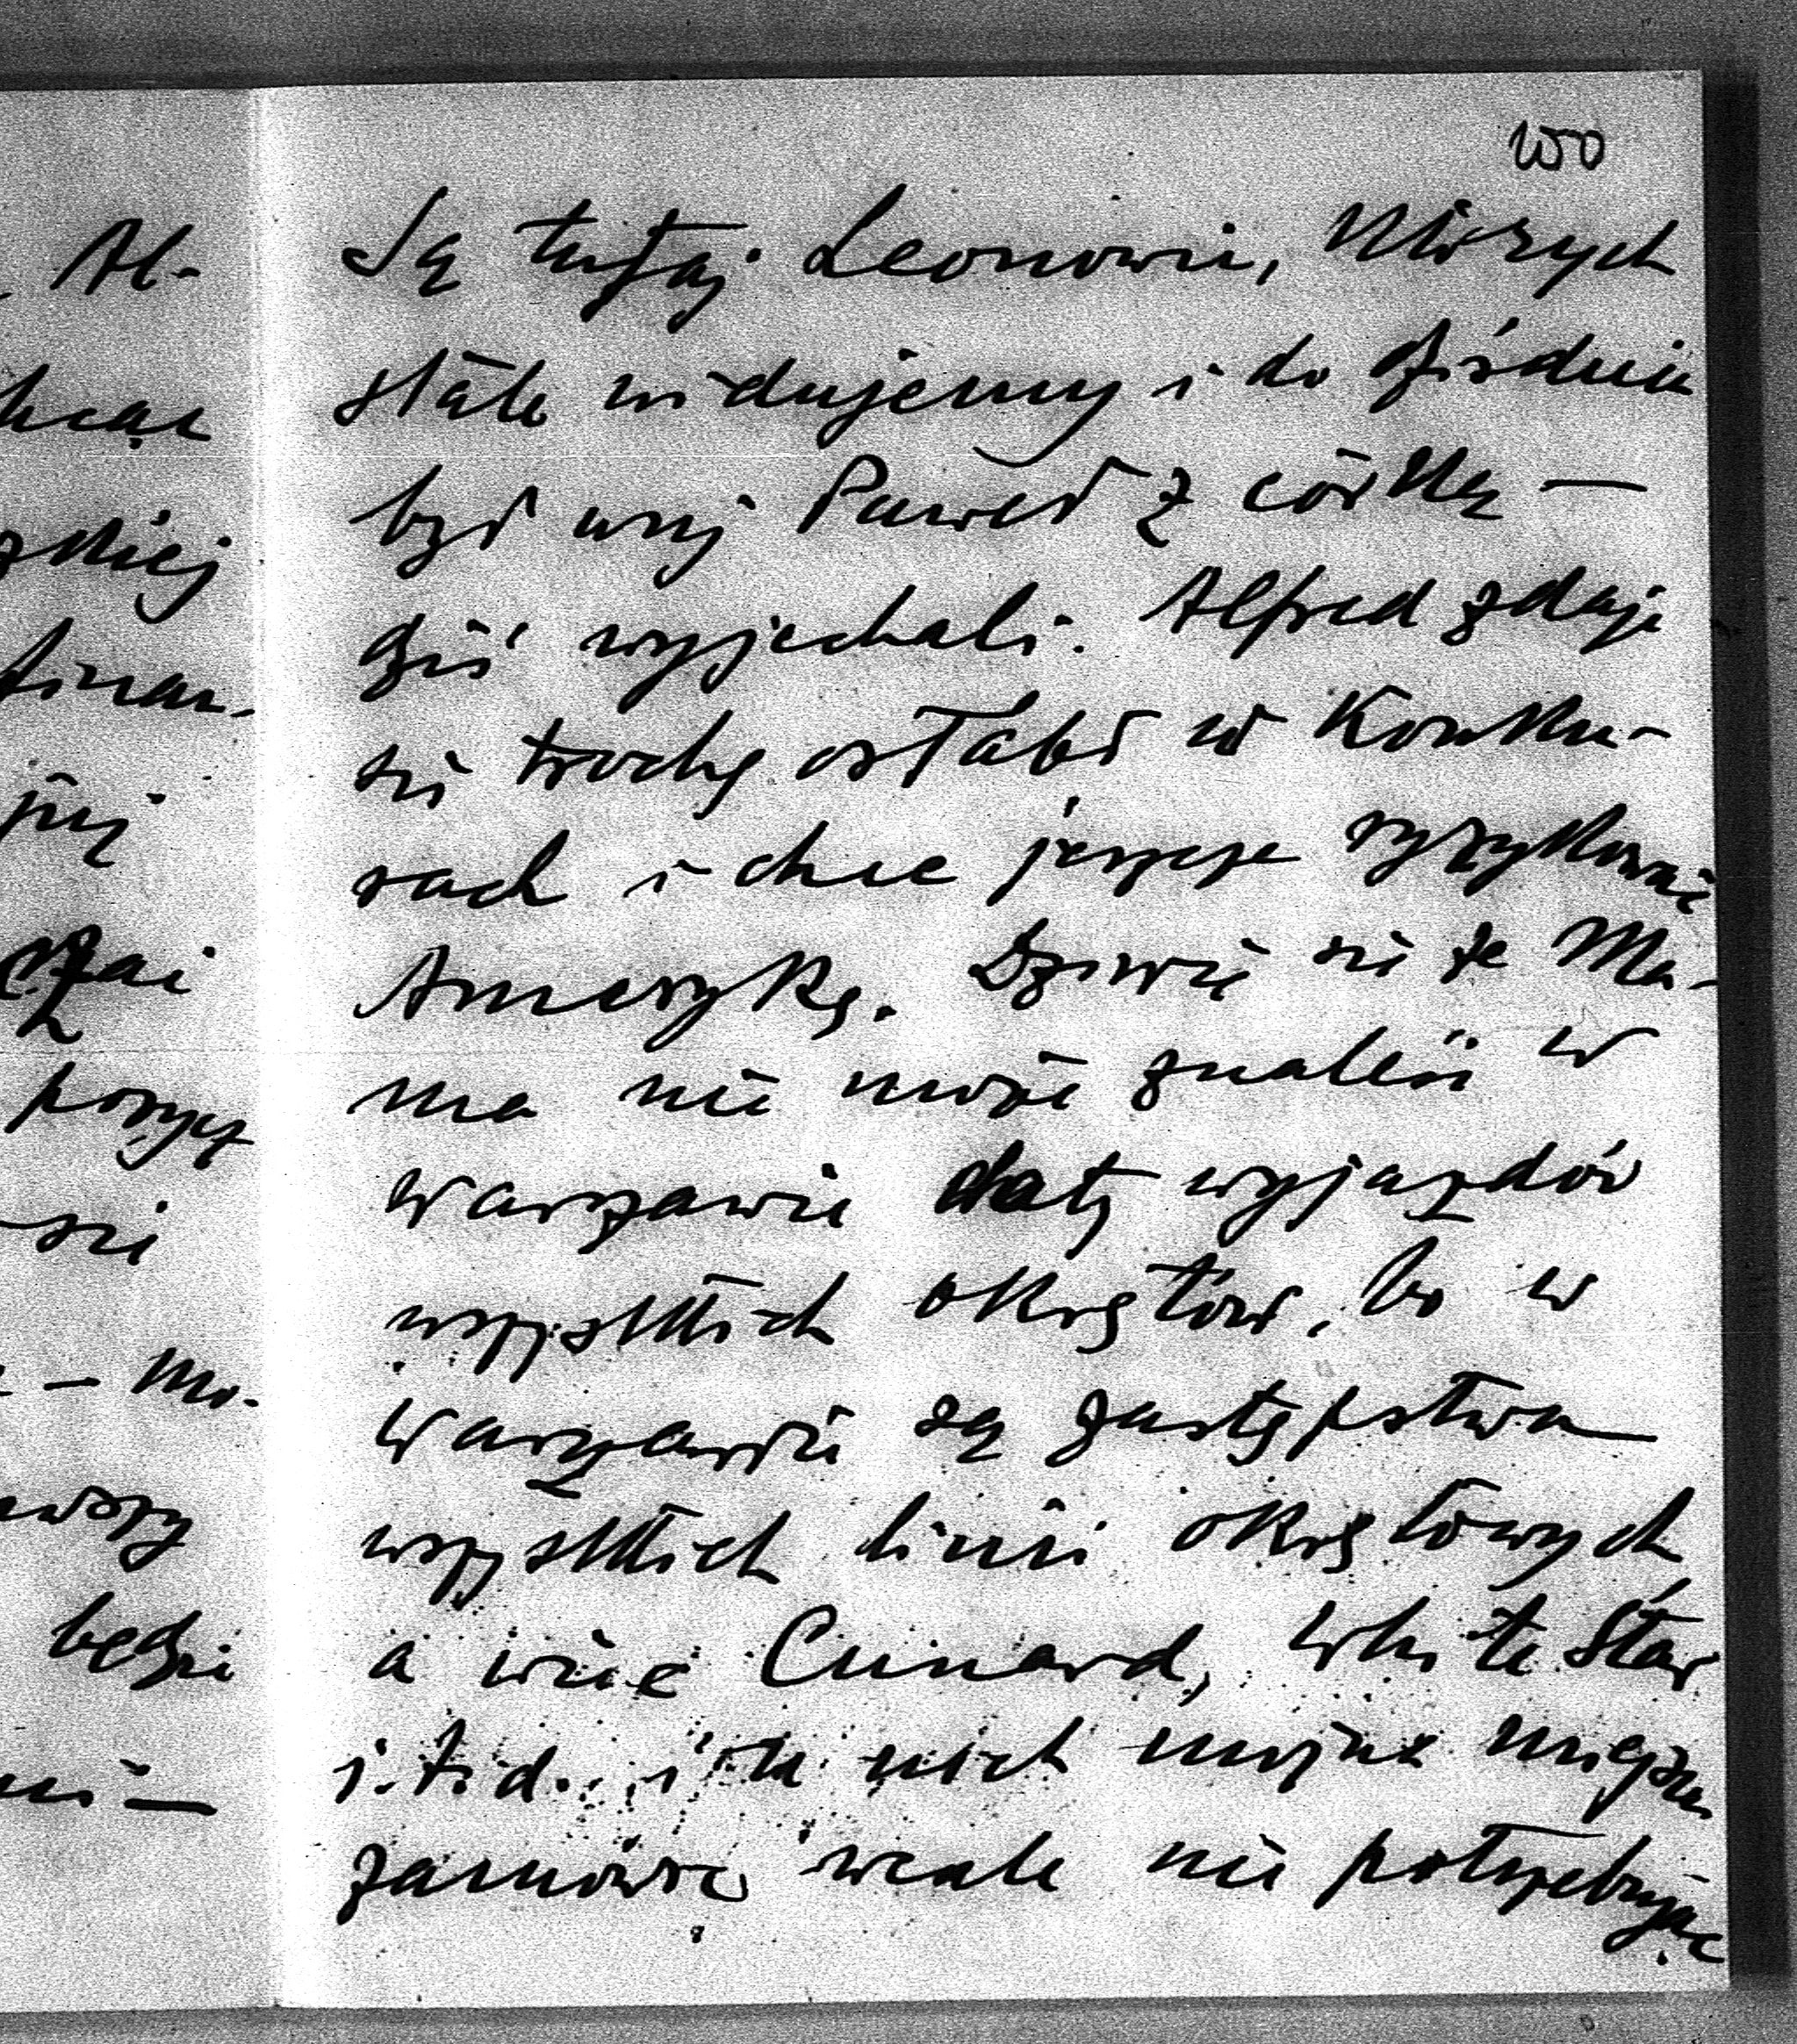 Są tutaj Leonowie, których
stale widujemy i do
był wuj Paweł z córką —
dziś wyjechali. Alfred zdaje
się trochę osłabł w Konku-
rach i chce jeszcze ryzykować
Amerykę. Dziwię się że Ma-
ma nie może znaleść w
Warszawie daty wyjazdów
wszystkich okrętów, bo w
Warszawie są zastępstwa
wszystkich linii okrętowych
a więc Cunard, White Star
i.t.d. i u nich można miejsca
zamówić wcale nie potrzebując
Al-
skiej
finan-
będzie